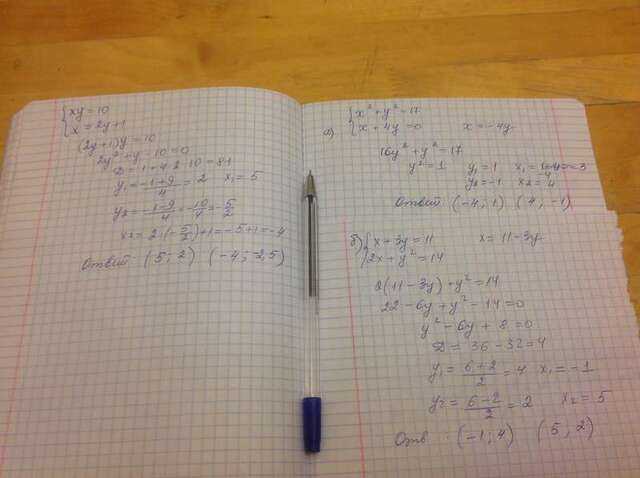 xy = 10
x = 2y+1
(2y+1)y = 10
2y² + y - 10 = 0
D = 1 + 4·2·10 = 81
y₁ = (-1+9)/4 = 2 x₁ = 5
y₂ = (-1-9)/4 = -10/4 = -5/2
x₂ = 2·(-5/2)+1 = -5+1 = -4
Ответ: (5; 2) (-4; -2,5)
а) x² + y² = 17
x + 4y = 0 x = -4y
16y² + y² = 17
y² = 1 y₁ = 1 x₁ =
-4
y₂ = -1 x₂ = 4
Ответ (-4; 1) (4, -1)
б) x + 3y = 11 x = 11-3y
2x + y² = 14
2(11-3y) + y² = 14
22 - 6y + y² - 14 = 0
y² - 6y + 8 = 0
D = 36 - 32 = 4
y₁ = (6+2)/2 = 4 x₁ = -1
y₂ = (6-2)/2 = 2 x₂ = 5
Отв (-1; 4) (5, 2)